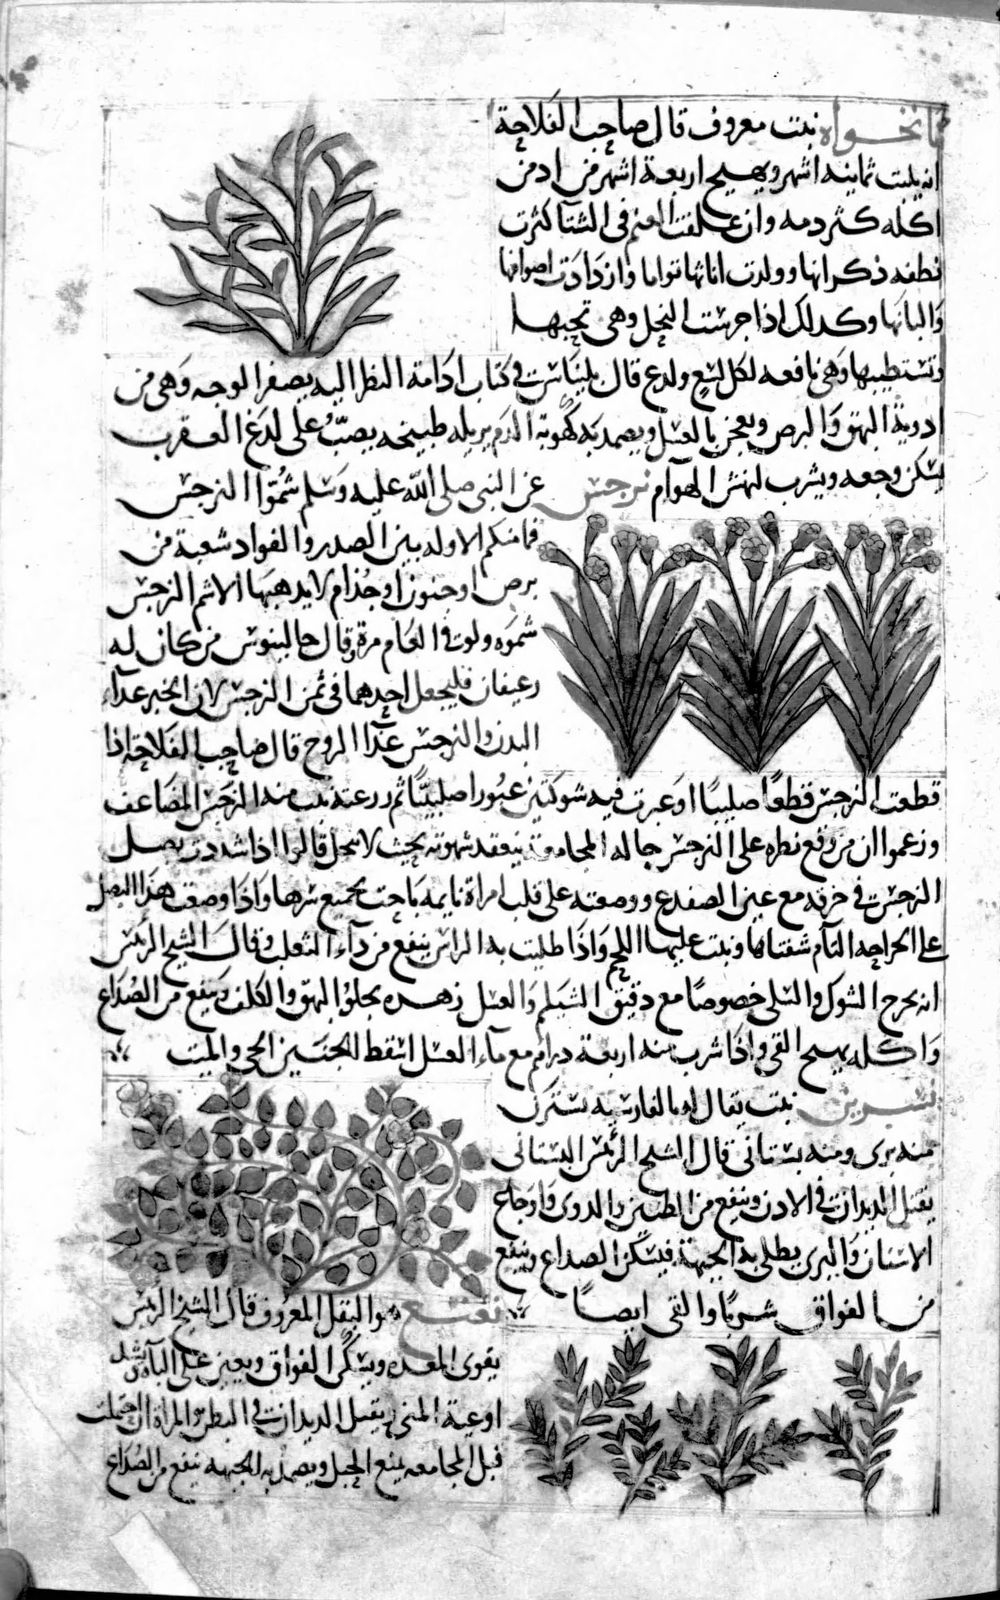 نانخواه نبت معروف قال صاحب الفلاحة
انه ينبت ثمانية اشهر ويهيج اربعة اشهر من ادمن
اكله كثر دمه وان علفت الغنم في الشتا كثرت
نطفه ذكرانها وولدت اناثها تواما وازدادت اصوافها
والبانها وكذلك اذا جرست النحل وهي تحبها
وتستطيبها وهي نافعه لكل لسع ولدغ قال بليناس في كتاب ادامة النظر اليه يصفر الوجه وهي من
ادوية البهق والبرص ويعجن بالعسل ويضمد به كهوبة الدم يزيله طبيخه يصب على لدغ العقرب
يسكن وجعه ويشرب لنهش الهوام نرجس عن النبي صلى الله عليه وسلم شموا النرجس
فما منكم الا وله بين الصدر والفواد شعبة من
برص او جنون او جذام لا يذهبها الا شم النرجس
شموه ولو في العام مرة وقال جالينوس من كان له
رغيفان فليجعل احدهما في ثمن النرجس لان الخبز غذاء
البدن والنرجس غذا الروح قال صاحب الفلاحة اذا
قطعت النرجس قطعا صليبا او غرت فيه شوكتين عبورا صليبيا ثم زرعته نبت منه النرجس المضاعف
وزعموا ان من وقع نظره على النرجس حاله المجامعة ينعقد شهوته بحيث لا تنحل قالوا اذا شددت بصل
النرجس في خرقه مع عين الضفدع ووضعته على قلب امراة نايمه باحت بجميع سرها واذا وضعت هذا البصل
على الجراحه التام شفتاها ونبت عليها اللحم واذا طليت به الراس ينفع من داء الثعلب وقال الشيخ الرئيس
انه يخرج الشوك والسلى خصوصا مع دقيق الشيلم والعسل زهره يجلو البهق والكلف وينفع من الصداع
واكله يهيج القي واذا شرب منه اربعة دراهم مع ماء العسل اسقط الجنين الحي والميت
نسرين نبت يقال له بالفارسيه نسترن
منه بري ومنه بستاني قال الشيخ الرئيس البستاني
يقتل الديدان في الاذن وينفع من الطنين والدوي واوجاع
الاسنان والبري يطلى به الجبهة فيسكن الصداع وينفع
من الفواق شربا والقي ايضا
نعنع هو البقل المعروف قال الشيخ الرئيس
يقوي المعده ويسكن الفواق ويعين على الباه
اوعية المني يقتل الديدان في البطن والمراة ان احتملت
قبل المجامعه يمنع الحبل ويضمد به الجبهه ينفع من الصداع